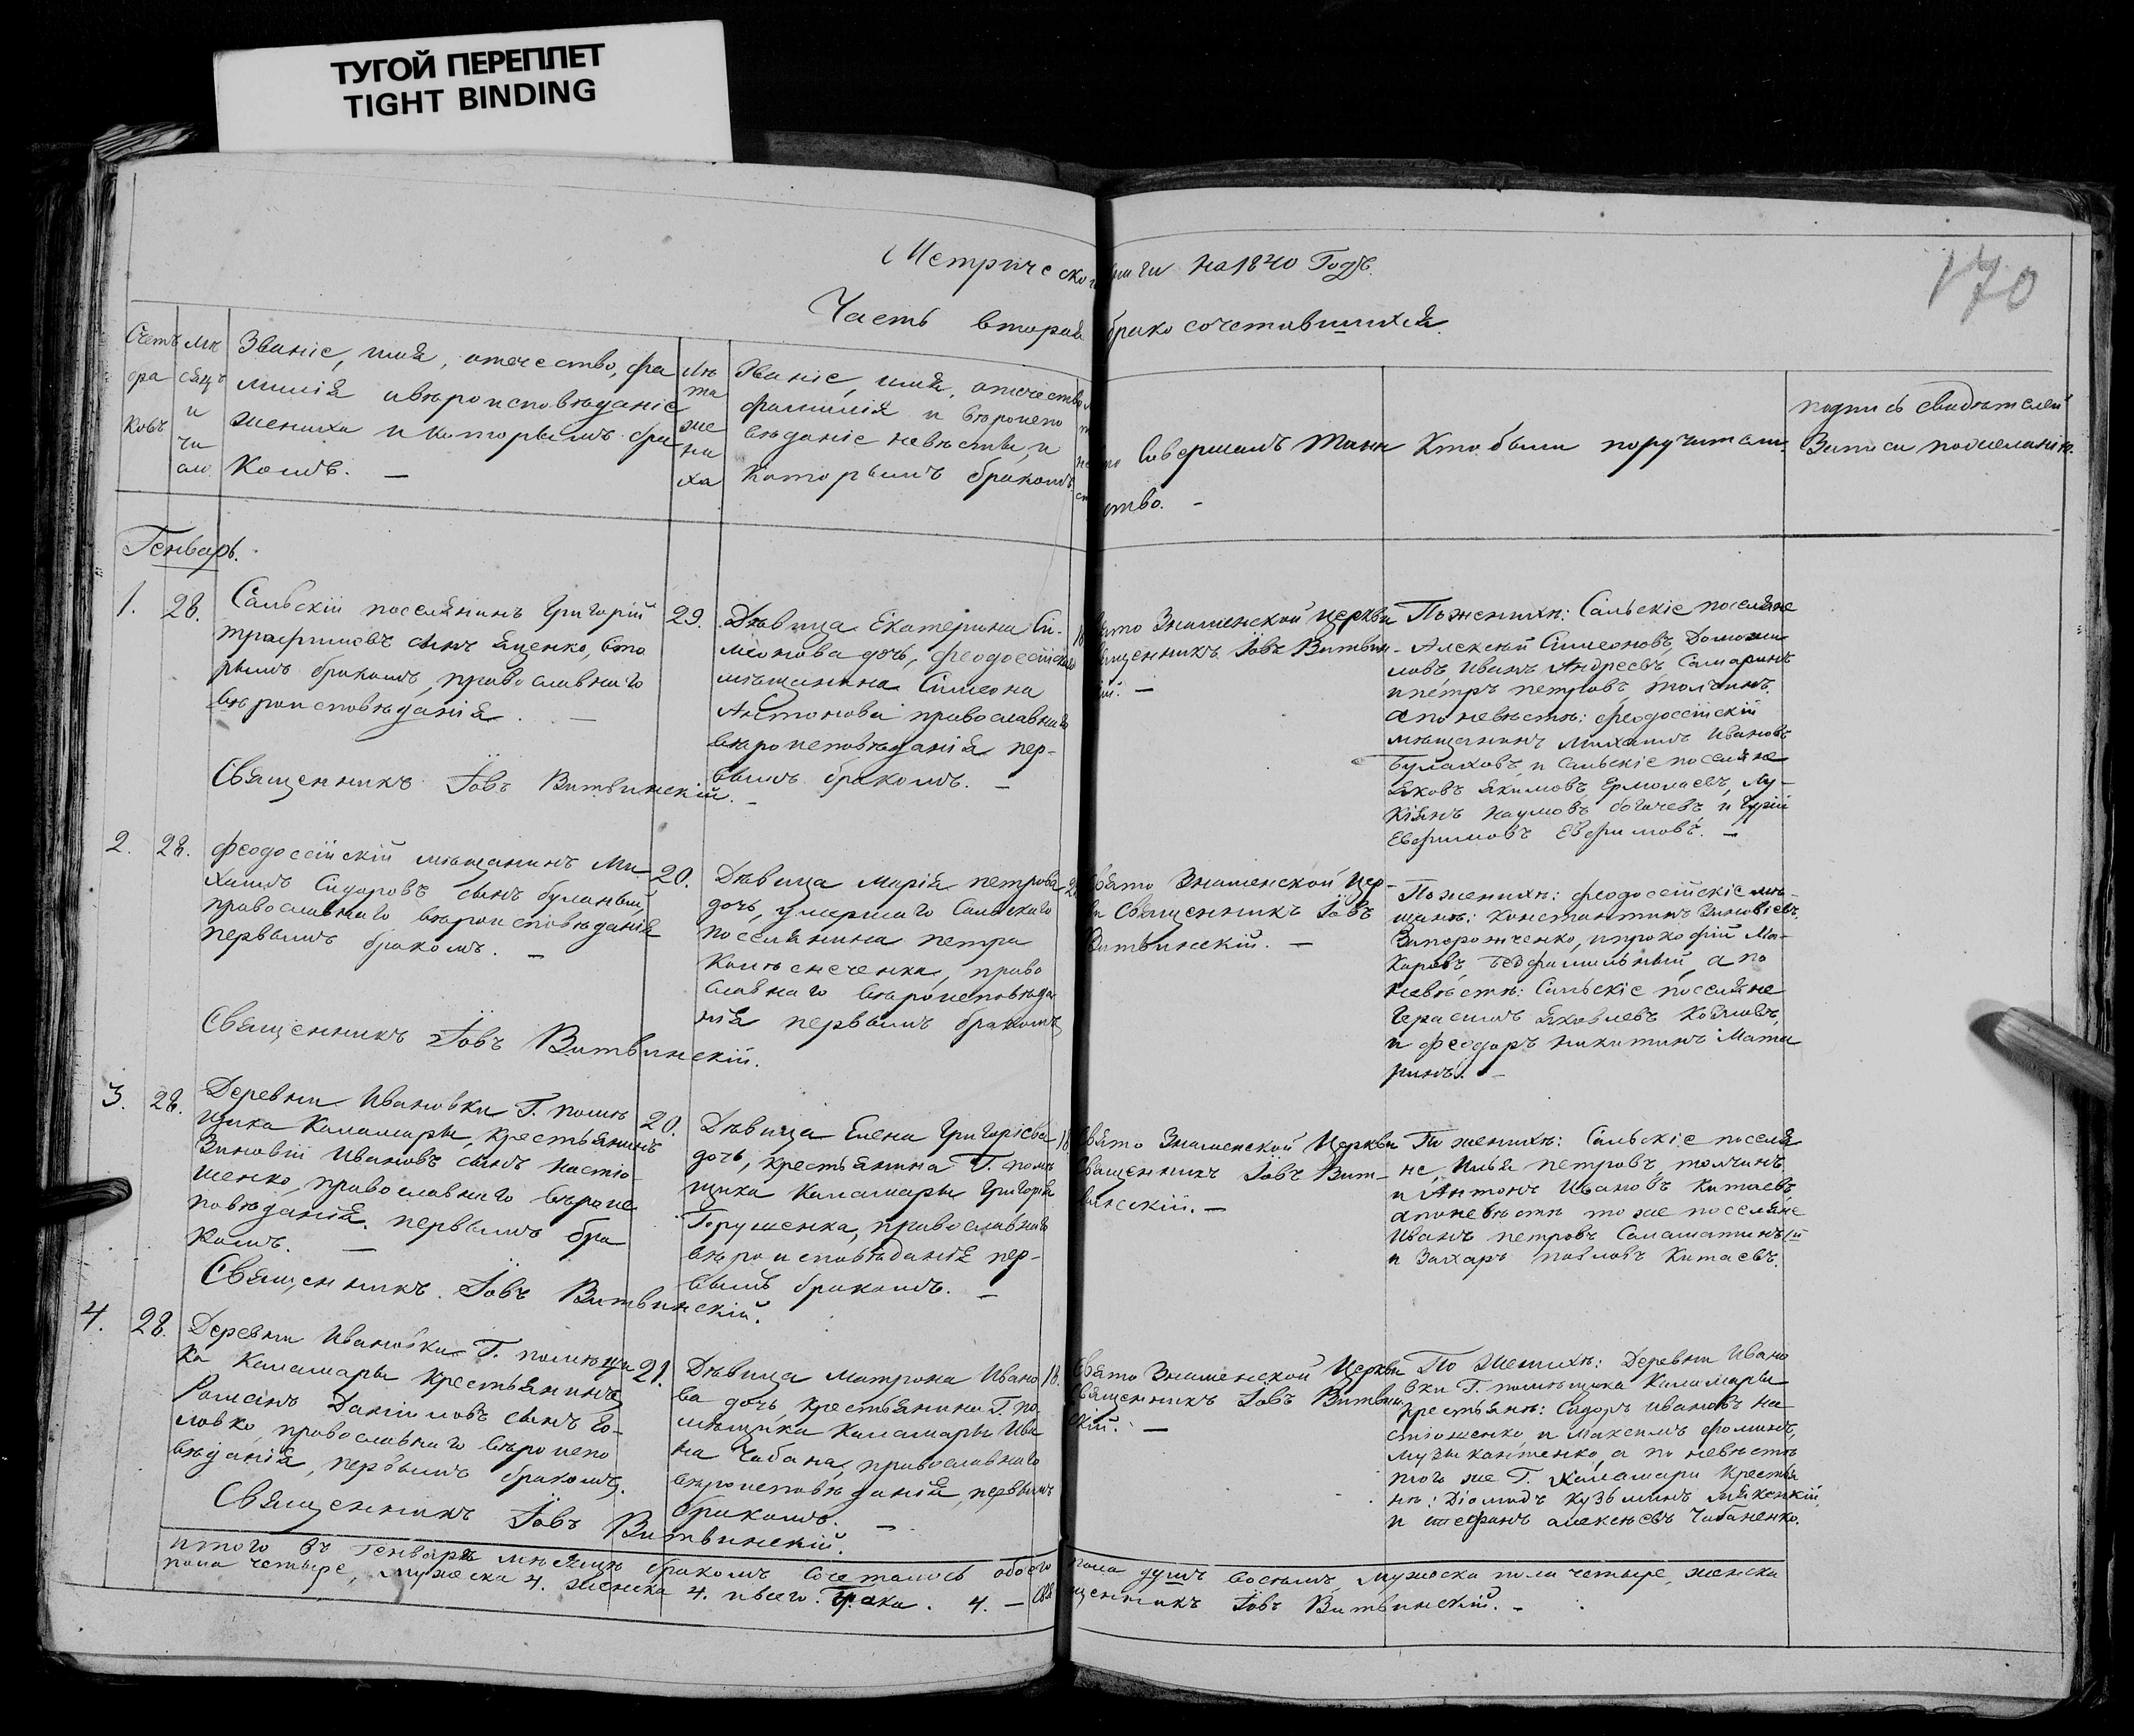 ТУГОЙ ПЕРЕПЛЕТ
TIGHT BINDING
170
Метрической книги на 1840 Годъ.
Часть вторая бракосочетавшихся.
Счетъ
бра
ковъ
Мѣ
сяцъ
и
чи
сло
Званіе, имя, отечество, фа
милія и вѣроисповѣданіе
жениха и которымъ бра
комъ. —
Лѣ
та
же
ни
ха
Званіе, имя, отечество
фамилія и вѣроиспо
вѣданіе невѣсты, и
которымъ бракомъ
Совершалъ таин
ство. —
Кто были поручители.
подпись свидѣтелей
Записи по желанію.
Генварь.
1. 28.
Сальскій поселянинъ Григорій
Трофимовъ сынъ Яценко, вто
рымъ бракомъ, православнаго
вѣроисповѣданія. —
Священникъ Іовъ Витвинскій. —
29.
Дѣвица Екатерина Си-
меонова дочь, феодосійскаго
мѣщанина Симеона
Антонова православнаго
вѣроисповѣданія пер-
вымъ бракомъ. —
18
Свято Знаменской церкви
Священникъ Іовъ Витвин-
скій. —
По женихѣ: Сальскіе поселяне
Алексѣй Симеоновъ,
Иванъ Андреевъ Самаринъ
и петръ петровъ толчинъ.
а по невѣстѣ: феодосійскій
мѣщанинъ Михаилъ Ивановъ
Булаховъ, и Сальскіе поселяне
Яковъ Якимовъ Ермолаевъ, Лу-
кіянъ Наумовъ богачевъ, и Гурій
Евфимовъ Евфимовъ. —
2. 28.
феодосійскій мѣщанинъ Ми-
хаилъ Сидоровъ сынъ буланый,
православнаго вѣроисповѣданія
первымъ бракомъ. —
Священникъ Іовъ Витвинскій.
20.
Дѣвица Марія петрова
дочь, умершаго Сальскаго
поселянина петра
право
славнаго вѣроисповѣда
нія первымъ бракомъ
Свято Знаменской Цер-
кви Священникъ Іовъ
Витвинскій. —
По женихѣ: феодосійскіе мѣ-
щанѣ: Константинъ Зиновіевъ
Запорожченко, и прокофій Ма-
каровъ безфамильный, а по
невѣстѣ: Сальскіе поселяне
Герасимъ Яковлевъ
и феодоръ никитинъ
3. 28.
Деревни Ивановки Г. помѣ
щика Каламары, крестьянинъ
Зиновій Ивановъ сынъ Настю
шенко, православнаго вѣроис
повѣданія. первымъ бра
комъ. —
Священникъ Іовъ Витвинскій.
20.
Дѣвица Елена Григоріева
дочь, крестьянина Г. помѣ
щика Каламары Григорія
Горушенка, православнаго
вѣроисповѣданія пер-
вымъ бракомъ. —
18
Свято Знаменской Церкви
Священникъ Іовъ Вит-
винскій. —
По женихѣ: Сальскіе поселя
не, Илья петровъ толчинъ
и Антонъ Ивановъ Китаевъ
а по невѣстѣ то же поселяне
Иванъ петровъ Саламатинъ 1й
и Захаръ павловъ Китаевъ.
4. 28.
Деревни Ивановки Г. помѣщи
ка Каламары крестьянинъ
Романъ Даніиловъ сынъ Го-
ловко, православнаго вѣроиспо
вѣданія, первымъ бракомъ.
Священникъ Іовъ Витвинскій.
21.
Дѣвица Матрона Ивано
ва дочь, крестьянина Г. по
мѣщика Каламары Ива
на Чабана, православнаго
вѣроисповѣданія, первымъ
бракомъ. —
18.
Свято Знаменской Церкви
Священникъ Іовъ Витвин
скій. —
По Женихѣ: Деревни Ивано
вки Г. помѣщика Каламары
крестьянѣ: Сидоръ Ивановъ На
стюженко, и Максимъ фоминъ,
музыкантенко, а по невѣстѣ
того же Г. Каламари Крестья
нѣ: Діомидъ Кузьминъ
и стефанъ алексѣевъ Чабаненко.
Итого въ Генварѣ мѣсяцѣ бракомъ сочеталось обоего пола душъ восемь, мужеска пола четыре, женска
пола четыре, мужеска 4. женска 4. и всего. брака. 4. — Священникъ Іовъ Витвинскій. —